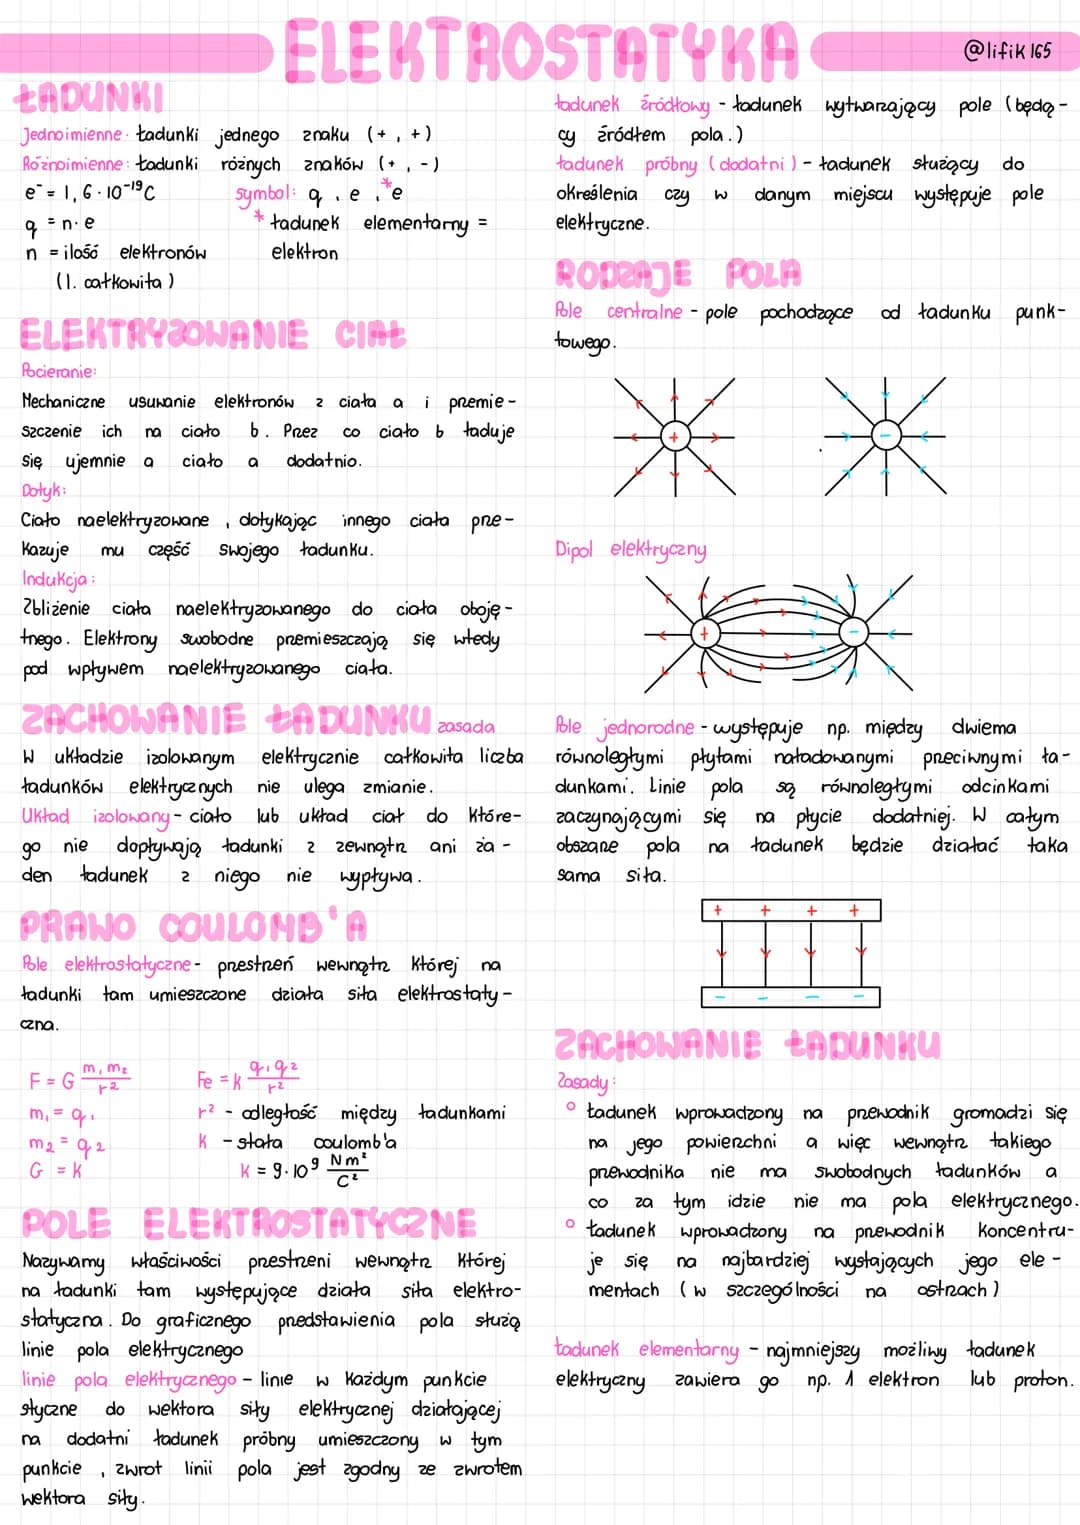 ELEKTROSTATYKA
@lifik165
ŁADUNKI
Jednoimienne: ładunki jednego znaku (+, +)
Różnoimienne: ładunki różnych znaków (+, -)
e⁻ = 1,6 · 10⁻¹⁹C
symbol: q, e, *e
q = n · e
* ładunek elementarny =
n = ilość elektronów
elektron
(l. całkowita)
ELEKTRYZOWANIE CIAŁ
Pocieranie:
Mechaniczne usuwanie elektronów z ciała a i przemie-
szczenie ich na ciało b. Przez co ciało b ładuje
się ujemnie a ciało a dodatnio.
Dotyk:
Ciało naelektryzowane, dotykając innego ciała prze-
kazuje mu część swojego ładunku.
Indukcja:
Zbliżenie ciała naelektryzowanego do ciała oboję-
tnego. Elektrony swobodne przemieszczają się wtedy
pod wpływem naelektryzowanego ciała.
ZACHOWANIE ŁADUNKU zasada
W układzie izolowanym elektrycznie całkowita liczba
ładunków elektrycznych nie ulega zmianie.
Układ izolowany - ciało lub układ ciał do które-
go nie dopływają ładunki z zewnątrz ani ża-
den ładunek z niego nie wypływa.
PRAWO COULOMB'A
Pole elektrostatyczne - przestrzeń wewnątrz której na
ładunki tam umieszczone działa siła elektrostaty-
czna.
F = G m₁m₂/r²
Fe = k q₁q₂/r²
m₁ = q₁
r² - odległość między ładunkami
m₂ = q₂
k - stała coulomb'a
G = k
k = 9 · 10⁹ Nm²/C²
POLE ELEKTROSTATYCZNE
Nazywamy właściwości przestrzeni wewnątrz której
na ładunki tam występujące działa siła elektro-
statyczna. Do graficznego przedstawienia pola służą
linie pola elektrycznego
linie pola elektrycznego - linie w każdym punkcie
styczne do wektora siły elektrycznej działającej
na dodatni ładunek próbny umieszczony w tym
punkcie, zwrot linii pola jest zgodny ze zwrotem
wektora siły.
ładunek źródłowy - ładunek wytwarzający pole (będą-
cy źródłem pola.)
ładunek próbny (dodatni) - ładunek służący do
określenia czy w danym miejscu występuje pole
elektryczne.
RODZAJE POLA
Pole centralne - pole pochodzące od ładunku punk-
towego.
+ -
Dipol elektryczny
+ -
Pole jednorodne - występuje np. między dwiema
równoległymi płytami naładowanymi przeciwnymi ła-
dunkami. Linie pola są równoległymi odcinkami
zaczynającymi się na płycie dodatniej. W całym
obszarze pola na ładunek będzie działać taka
sama siła.
+ + + +
- - - -
ZACHOWANIE ŁADUNKU
Zasady:
° ładunek wprowadzony na przewodnik gromadzi się
na jego powierzchni a więc wewnątrz takiego
przewodnika nie ma swobodnych ładunków a
co za tym idzie nie ma pola elektrycznego.
° ładunek wprowadzony na przewodnik koncentru-
je się na najbardziej wystających jego ele-
mentach (w szczególności na ostrzach)
ładunek elementarny - najmniejszy możliwy ładunek
elektryczny zawiera go np. 1 elektron lub proton.